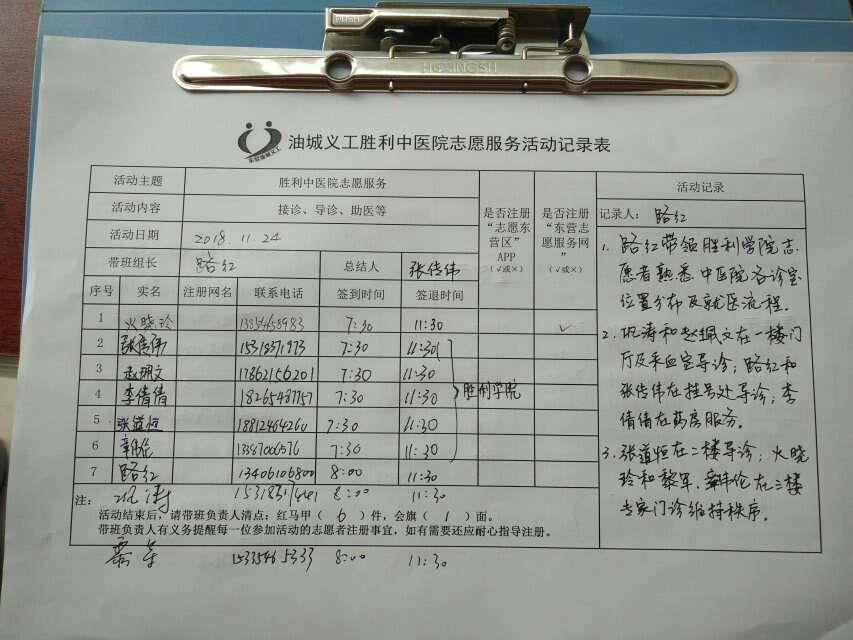 HGXINGSH
油城义工胜利中医院志愿服务活动记录表
活动主题 胜利中医院志愿服务
活动内容 接诊、导诊、助医等
活动日期 2018.11.24
带班组长 路红 总结人 张传伟
是否注册“志愿东营区”APP（√或×）
是否注册“东营志愿服务网”（√或×）
序号 实名 注册网名 联系电话 签到时间 签退时间
1 火晓玲 7:30 11:30 √
2 张传伟 7:30 11:30
3 赵珮文 17862156201 7:30 11:30
4 李倩倩 18265487757 7:30 11:30 胜利学院
5 张道恒 18812464260 7:30 11:30
6 7:30 11:30
7 路红 13406106800 8:00 11:30
注： 巩涛 8:00 11:30
活动结束后，请带班负责人清点：红马甲（ 6 ）件，会旗（ 1 ）面。
带班负责人有义务提醒每一位参加活动的志愿者注册事宜，如有需要还应耐心指导注册。
8:00 11:30
活动记录
记录人：路红
1. 路红带领胜利学院志
愿者熟悉中医院各诊室
位置分布及就医流程.
2. 巩涛和赵珮文在一楼门
厅及采血室导诊；路红和
张传伟在挂号处导诊；李
倩倩在药房服务。
3. 张道恒在二楼导诊；火晓
玲和黎军、伦在三楼
专家门诊维持秩序。